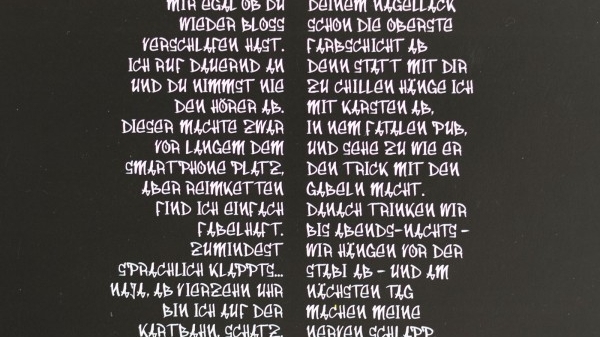 MIR EGAL OB DU
WIEDER BLOSS
VERSCHLAFEN HAST.
ICH RUF DAUERND AN
UND DU NIMMST NIE
DEN HÖRER AB.
DIESER MACHTE ZWAR
VOR LANGEM DEM
SMARTPHONE PLATZ,
ABER REIMKETTEN
FIND ICH EINFACH
FABELHAFT.
ZUMINDEST
SPRACHLICH KLAPPTS...
NAJA, AB VIERZEHN UHR
BIN ICH AUF DER
KARTBAHN, SCHATZ.
DEINEM NAGELLACK
SCHON DIE OBERSTE
FARBSCHICHT AB
DENN STATT MIT DIR
ZU CHILLEN HÄNGE ICH
MIT KARSTEN AB,
IN NEM FATALEN PUB,
UND SEHE ZU WIE ER
DEN TRICK MIT DEN
GABELN MACHT.
DANACH TRINKEN WIR
BIS ABENDS-NACHTS -
WIR HÄNGEN VOR DER
STABI AB - UND AM
NÄCHSTEN TAG
MACHEN MEINE
NERVEN SCHLAPP